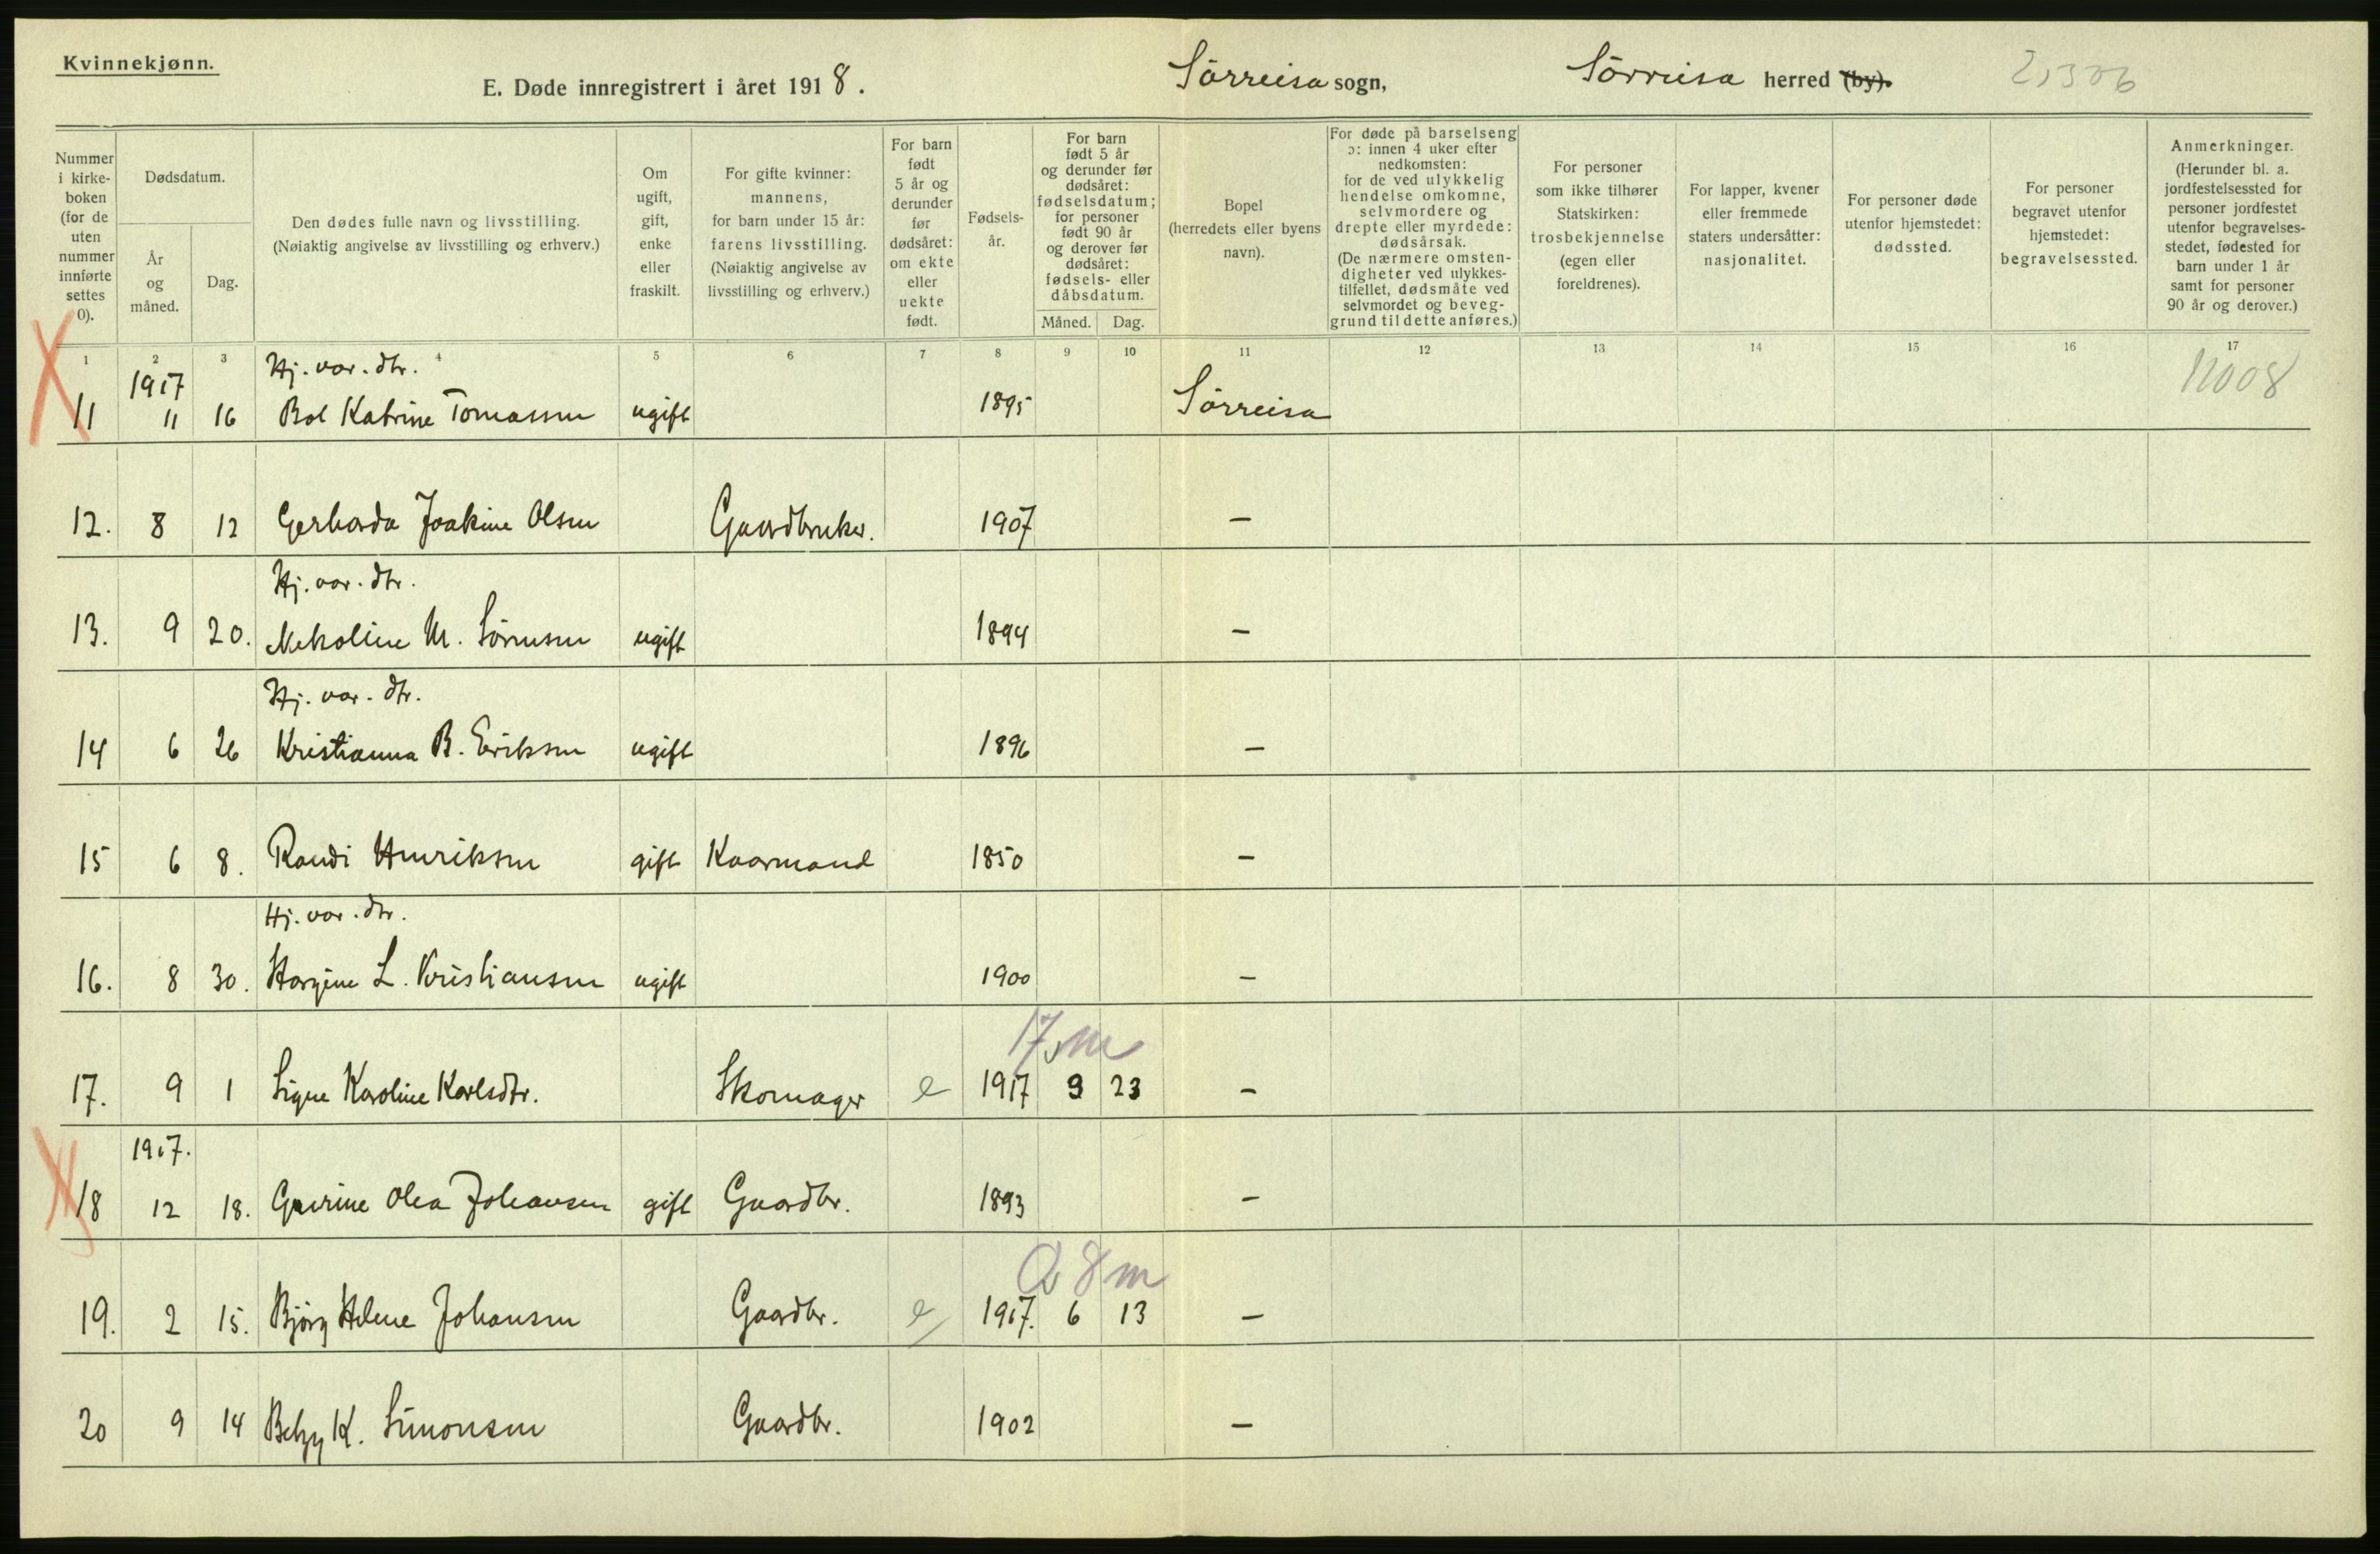 Kvinnekjønn.
E. Døde innregistrert i året 1918. Sørreisa sogn, Sørreisa herred (by).
Nummer i kirkeboken (for de uten nummer innførte settes 0).
Dødsdatum.
År og måned.
Dag.
Den dødes fulle navn og livsstilling.
(Nøiaktig angivelse av livsstilling og erhverv.)
Om ugift, gift, enke eller fraskilt.
For gifte kvinner: mannens, for barn under 15 år: farens livsstilling. (Nøiaktig angivelse av livsstilling og erhverv.)
For barn født 5 år og derunder før dødsåret: om ekte eller uekte født.
Fødselsår.
For barn født 5 år og derunder før dødsåret: fødselsdatum; for personer født 90 år og derover før dødsåret: fødsels- eller dåbsdatum.
Måned. Dag.
Bopel (herredets eller byens navn).
For døde på barselseng ɔ: innen 4 uker efter nedkomsten: for de ved ulykkelig hendelse omkomne, selvmordere og drepte eller myrdede: dødsårsak. (De nærmere omstendigheter ved ulykkestilfellet, dødsmåte ved selvmordet og beveggrund til dette anføres.)
For personer som ikke tilhører Statskirken: trosbekjennelse (egen eller foreldrenes).
For lapper, kvener eller fremmede staters undersåtter: nasjonalitet.
For personer døde utenfor hjemstedet: dødssted.
For personer begravet utenfor hjemstedet: begravelsessted.
Anmerkninger. (Herunder bl. a. jordfestelsessted for personer jordfestet utenfor begravelsesstedet, fødested for barn under 1 år samt for personer 90 år og derover.)
1 2 3 4 5 6 7 8 9 10 11 12 13 14 15 16 17
1917 Hj. var. dtr. 11008
11 11 16 Bol Katrine Tomassen ugift 1895 Sørreisa
12. 8 12 Gerharda Joakine Olsen Gaardbruker. 1907 —
Hj. var. dtr.
13. 9 20. Nekoline M. Sørensen ugift 1894 —
Hj. var. dtr.
14 6 26 Kristianna B. Eriksen ugift 1896 —
15 6 8. Randi Henriksen gift Kaarmand 1850 —
Hj. var. dtr.
16. 8 30. Hargine L. Kristiansen ugift 1900 —
17 m
17. 9 1 Signe Karoline Karlsdtr. Skomager e 1917 3 23 —
1917.
18 12 18. Gurine Olea Johansen gift Gaardbr. 1893 —
8 m
19. 2 15. Bjørg Helene Johansen Gaardbr. e 1917. 6 13 —
20 9 14 Betzy K. Simonsen Gaardbr. 1902 —